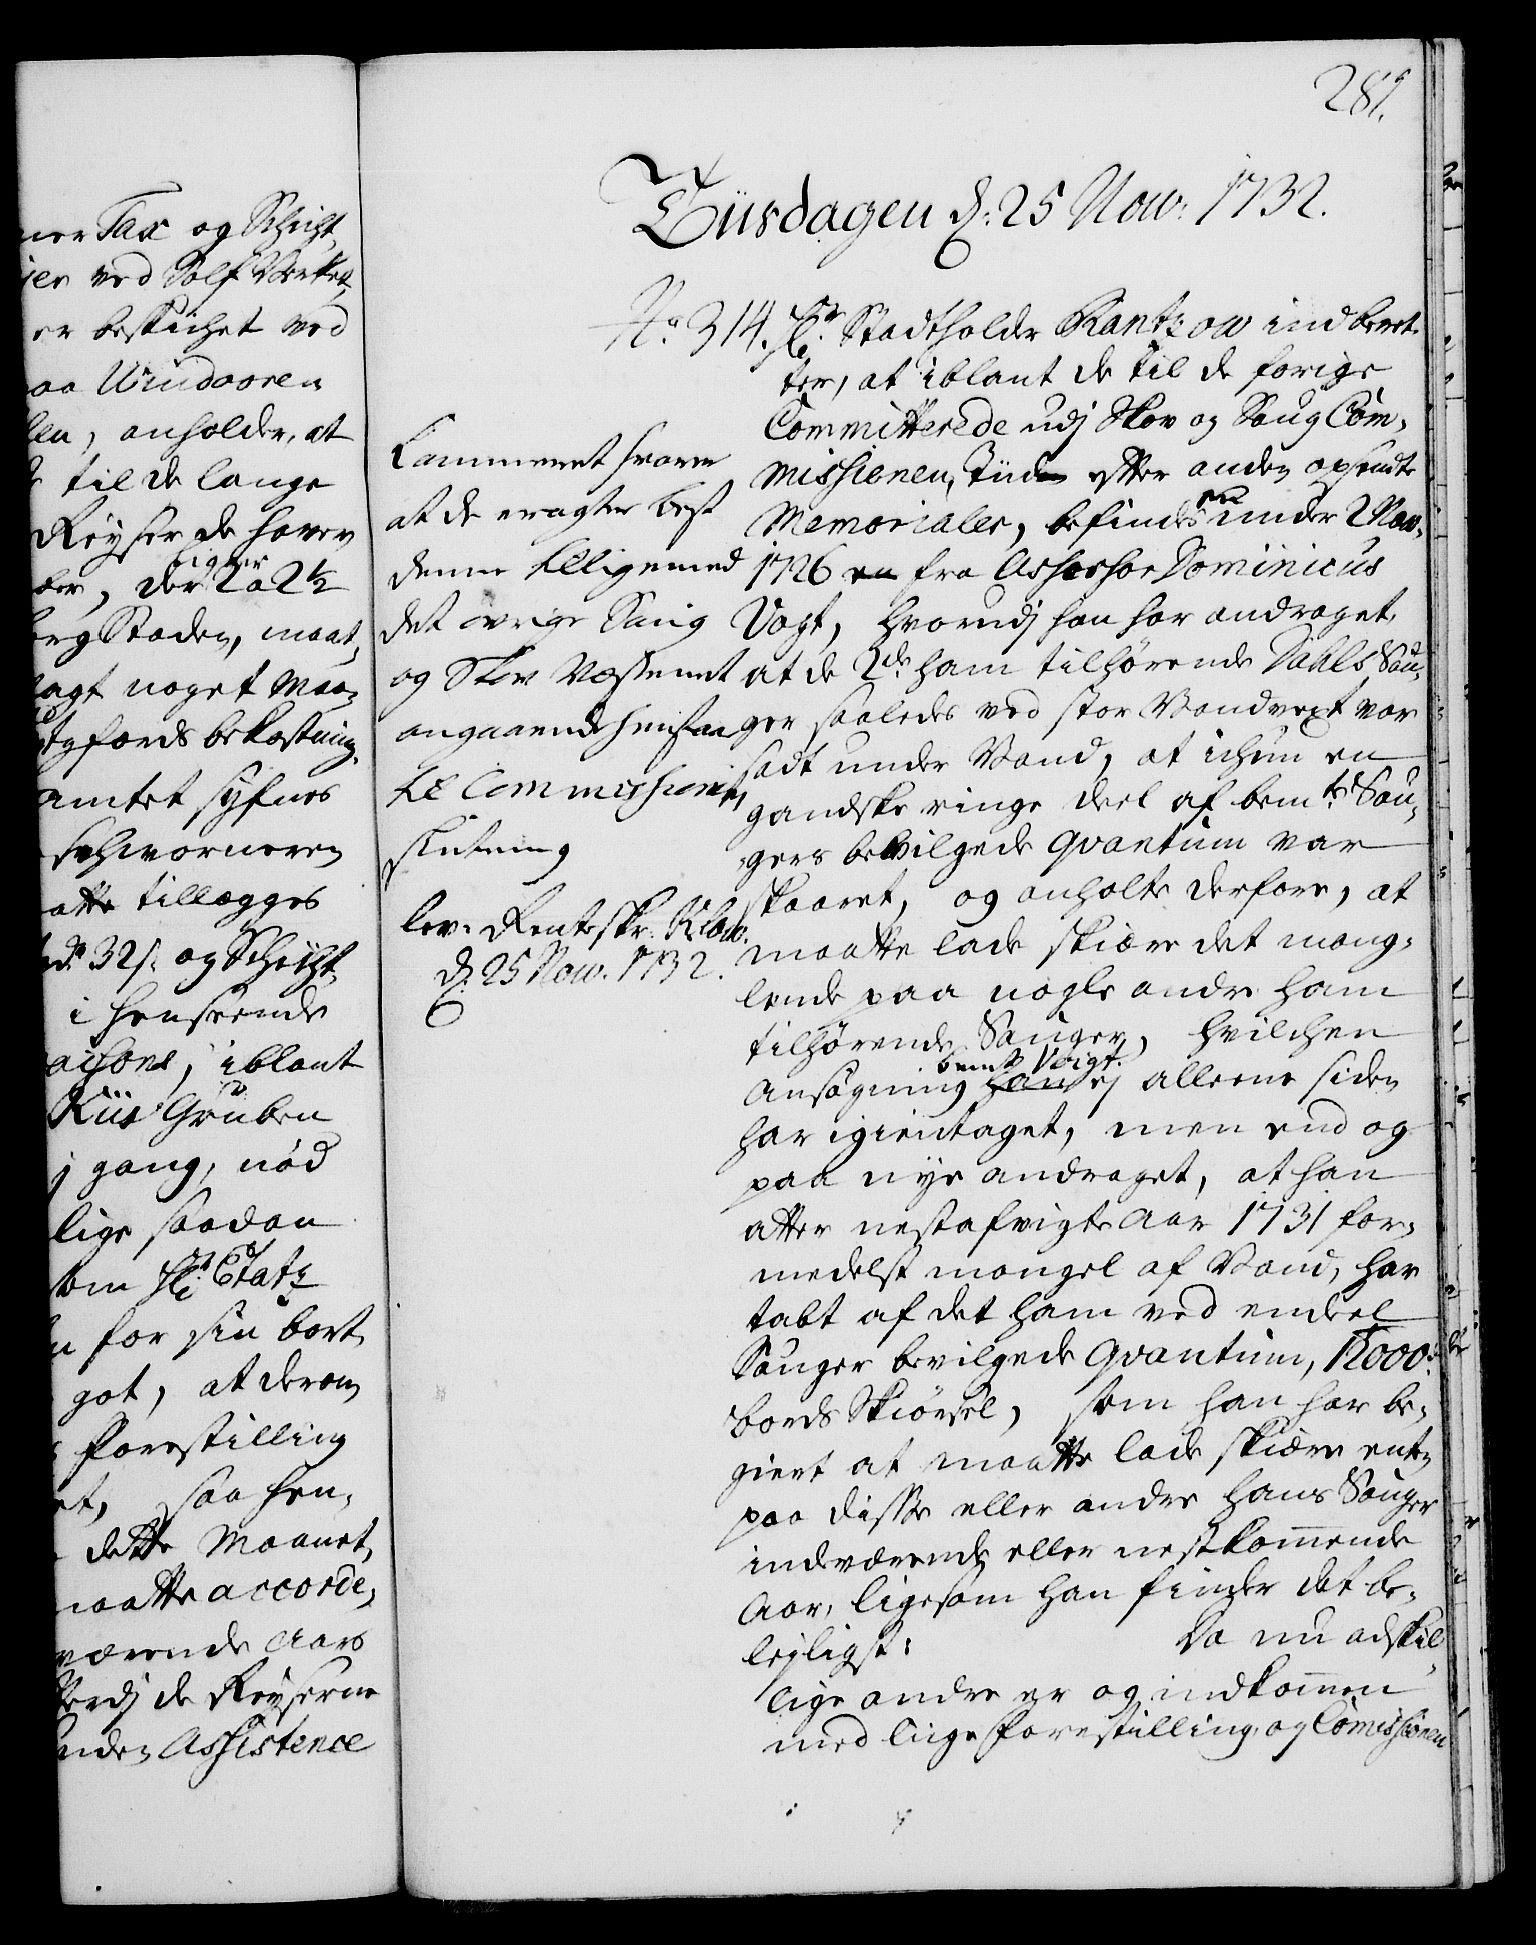 281.
Tiisdagen d: 25 Nov: 1732.
No 314. Hr. Stadtholder Rantzow indberet-
ter, at iblant de til de forige
Committerede udj Skov og Saug Com-
missionen, Tiid efter anden opsendte
Memorialer, befindes en under 2 Nov.
1726 en fra Assessor Dominicus
Vogt, hvorudj han har andraget,
at de 2de ham tilhørende Dahls Sau-
ger saaledes ved stor Vandvext var
sadt under Vand, at ichun en
gandske ringe deel af bemte Sau-
gers bevilgede Qvantum var
skaaret, og anholte derfore, at
maatte lade skiære det mang-
lende paa nogle andre ham
tilhørende Sauger, hvilchen
bemte Vogt.
Ansøgning han ej alleene siden
har igientaget, men end og
paa nye andraget, at han
atter nestafvigte Aar 1731 for-
medelst mangel af Vand, har
tabt af det ham ved endeel
Sauger bevilgede Qvantum, 12000
bords Skiørsel, som han har be-
giert at maatte lade skiære ent:
paa disse eller andre hans Sauger
indværende eller nestkommende
Aar, ligesom han finder det be-
lejligst: Da nu adskil-
lige andre er og indkommen
med liige forestilling, og Commissionen
Cammeret svarer
at de eragter best
denne tillige med
det øvrige Saug
og Skov Væssenet
angaaende henstaar
til Commissionens
slutning
lev: Renteskr: Klow.
d. 25 Nov. 1732.
ner Tax og Schicht
ier ved Sølf Verket,
er beskichet ved
paa Vindooren
len, anholder, at
til de lange
Reyser de haver
ber, der ligger 2 a 2½
berg Staden, maat
lagt noget Maa-
tgfærds bekostning.
amtet syfnes
schworneren
atte tillegges
d. 32 s: og Schicht
i henseende
achone, iblant
Kiis Gruben
j gang, nød
lige saadan
som Hr. Etatz
n for sin bort
got, at deren
forestilling
et, saa hen-
dette Maanet
maatte accorde-
værende Aars
ferdj de Reyserne
uden Assistence